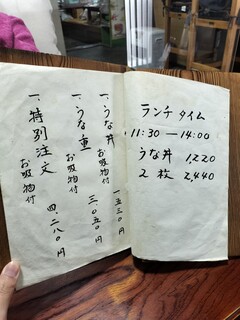 一、うな丼
お吸物付
一五三〇円
一、うな重
お吸物付
三〇五〇円
一、特別注文
お吸物付
四.二八〇円
ランチタイム
11:30―14:00
うな丼 1,220
2枚 2,440